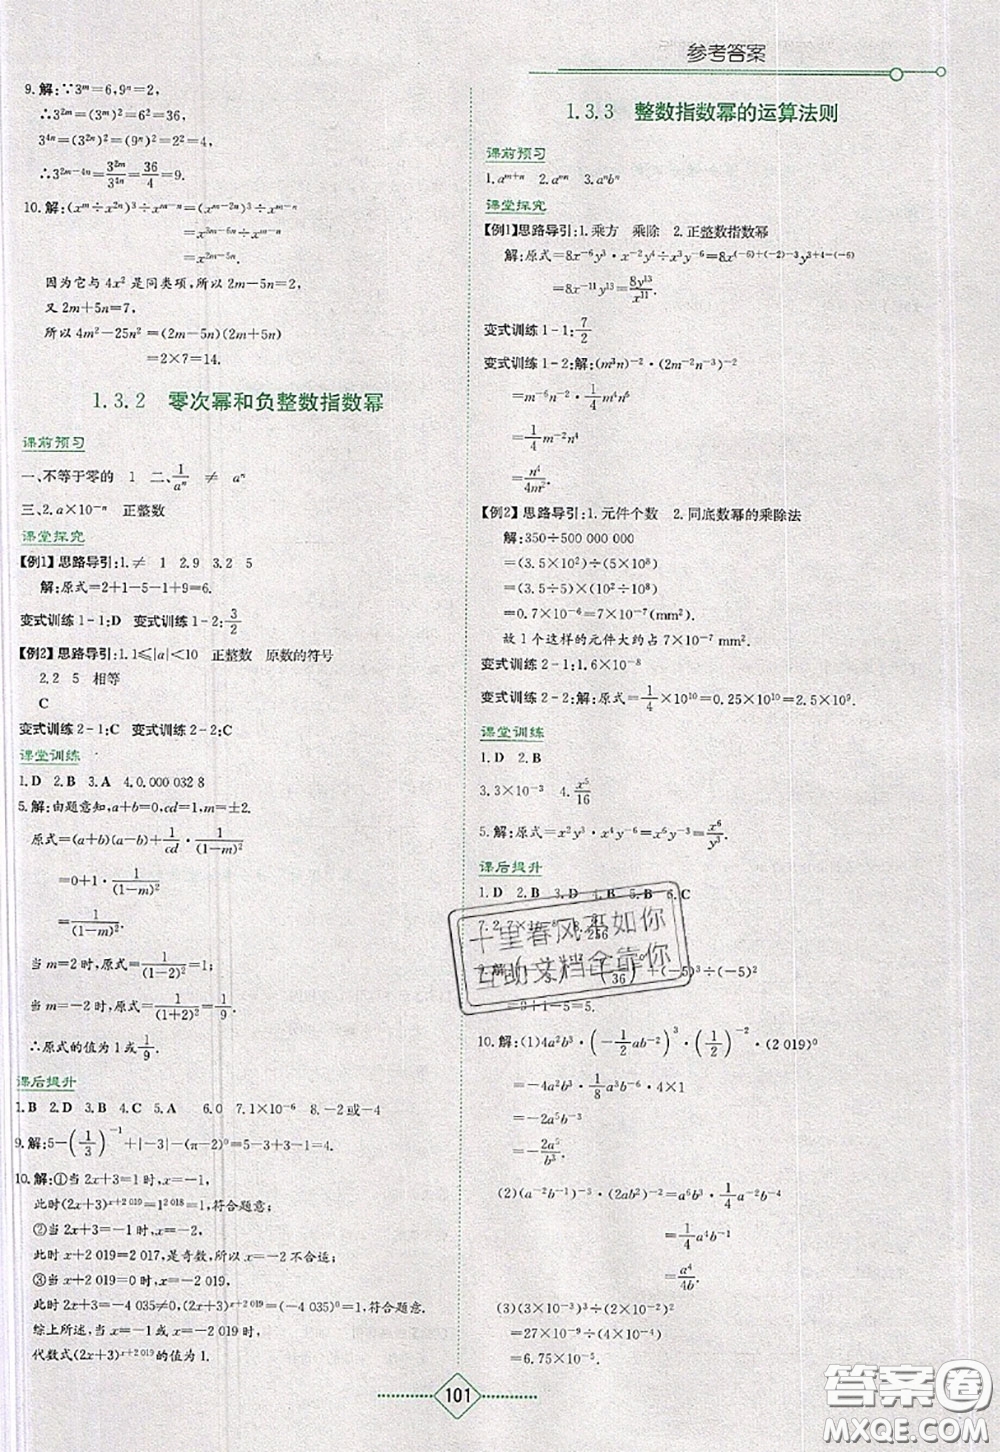 参考答案
9.解:∵3^m=6,9^n=2,
∴3^{2m}=(3^m)^2=6^2=36,
3^{4n}=(3^{2n})^2=(9^n)^2=2^2=4,
∴3^{2m-4n}=\frac{3^{2m}}{3^{4n}}=\frac{36}{4}=9.
10.解:(x^m÷x^{2n})^3÷x^{m-n}=(x^{m-2n})^3÷x^{m-n}
=x^{3m-6n}÷x^{m-n}
=x^{2m-5n}.
因为它与4x^2是同类项,所以2m-5n=2,
又2m+5n=7,
所以4m^2-25n^2=(2m-5n)(2m+5n)
=2×7=14.
1.3.2 零次幂和负整数指数幂
课前预习
一、不等于零的 1 二、\frac{1}{a^n} ≠ a^n
三、2.a×10^{-n} 正整数
课堂探究
【例1】思路导引:1.≠ 1 2.9 3.2 5
解:原式=2+1-5-1+9=6.
变式训练1-1:D 变式训练1-2:\frac{3}{2}
【例2】思路导引:1.1≤|a|<10 正整数 原数的符号
2.2 5 相等
C
变式训练2-1:C 变式训练2-2:C
课堂训练
1.D 2.B 3.A 4.0.000 032 8
5.解:由题意知,a+b=0,cd=1,m=±2.
原式=(a+b)(a-b)+\frac{1}{cd}·\frac{1}{(1-m)^2}
=0+1·\frac{1}{(1-m)^2}
=\frac{1}{(1-m)^2}.
当m=2时,原式=\frac{1}{(1-2)^2}=1;
当m=-2时,原式=\frac{1}{(1+2)^2}=\frac{1}{9}.
∴原式的值为1或\frac{1}{9}.
课后提升
1.B 2.D 3.B 4.C 5.A 6.0 7.1×10^{-6} 8.-2或-4
9.解:5-(\frac{1}{3})^{-1}+|-3|-(π-2)^0=5-3+3-1=4.
10.解:①当2x+3=1时,x=-1,
此时(2x+3)^{x+2 019}=1^{2 018}=1,符合题意;
②当2x+3=-1时,x=-2,
此时x+2 019=2 017,是奇数,所以x=-2不合适;
③当x+2 019=0时,x=-2 019,
此时2x+3=-4 035≠0,(2x+3)^{x+2 019}=(-4 035)^0=1,符合题意.
综上所述,当x=-1或x=-2 019时,
代数式(2x+3)^{x+2 019}的值为1.
1.3.3 整数指数幂的运算法则
课前预习
1.a^{m+n} 2.a^{mn} 3.a^nb^n
课堂探究
【例1】思路导引:1.乘方 乘除 2.正整数指数幂
解:原式=8x^{-6}y^3·x^{-2}y^4÷x^3y^{-6}=8x^{(-6)+(-2)-3}y^{3+4-(-6)}
=8x^{-11}y^{13}=\frac{8y^{13}}{x^{11}}.
变式训练1-1:\frac{7}{2}
变式训练1-2:解:(m^3n)^{-2}·(2m^{-2}n^{-3})^{-2}
=m^{-6}n^{-2}·\frac{1}{4}m^4n^6
=\frac{1}{4}m^{-2}n^4
=\frac{n^4}{4m^2}.
【例2】思路导引:1.元件个数 2.同底数幂的乘除法
解:350÷500 000 000
=(3.5×10^2)÷(5×10^8)
=(3.5÷5)×(10^2÷10^8)
=0.7×10^{-6}=7×10^{-7}(mm^2).
故1个这样的元件大约占7×10^{-7} mm^2.
变式训练2-1:1.6×10^{-8}
变式训练2-2:解:原式=\frac{1}{4}×10^{10}=0.25×10^{10}=2.5×10^9.
课堂训练
1.D 2.B
3.3×10^{-3} 4.\frac{x^5}{16}
5.解:原式=x^2y^3·x^4y^{-6}=x^6y^{-3}=\frac{x^6}{y^3}.
课后提升
1.D 2.B 3.D 4.B 5.B 6.C
10.解:(1)4a^2b^3·(-\frac{1}{2}ab^{-2})^3·(\frac{1}{2})^{-2}·(2 019)^0
=-4a^2b^3·\frac{1}{8}a^3b^{-6}·4×1
=-2a^5b^{-3}
=-\frac{2a^5}{b^3}.
(2)(a^{-2}b^{-1})^{-3}·(2ab^2)^{-2}=a^6b^3·\frac{1}{4}a^{-2}b^{-4}
=\frac{1}{4}a^4b^{-1}
=\frac{a^4}{4b}.
(3)(3×10^{-3})^3÷(2×10^{-4})^2
=27×10^{-9}÷(4×10^{-8})
=6.75×10^{-1}.
十里春风不如你
互助文档全靠你
101
答案圈
MXQE.COM